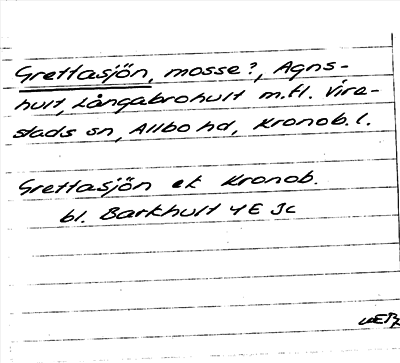 Grettasjön, mosse?, Agns-
hult, Långabrohult m.fl. Vire-
stads sn, Allbo hd, Kronob. l.
Grettasjön ek Kronob.
bl. Barkhult 4E 3c